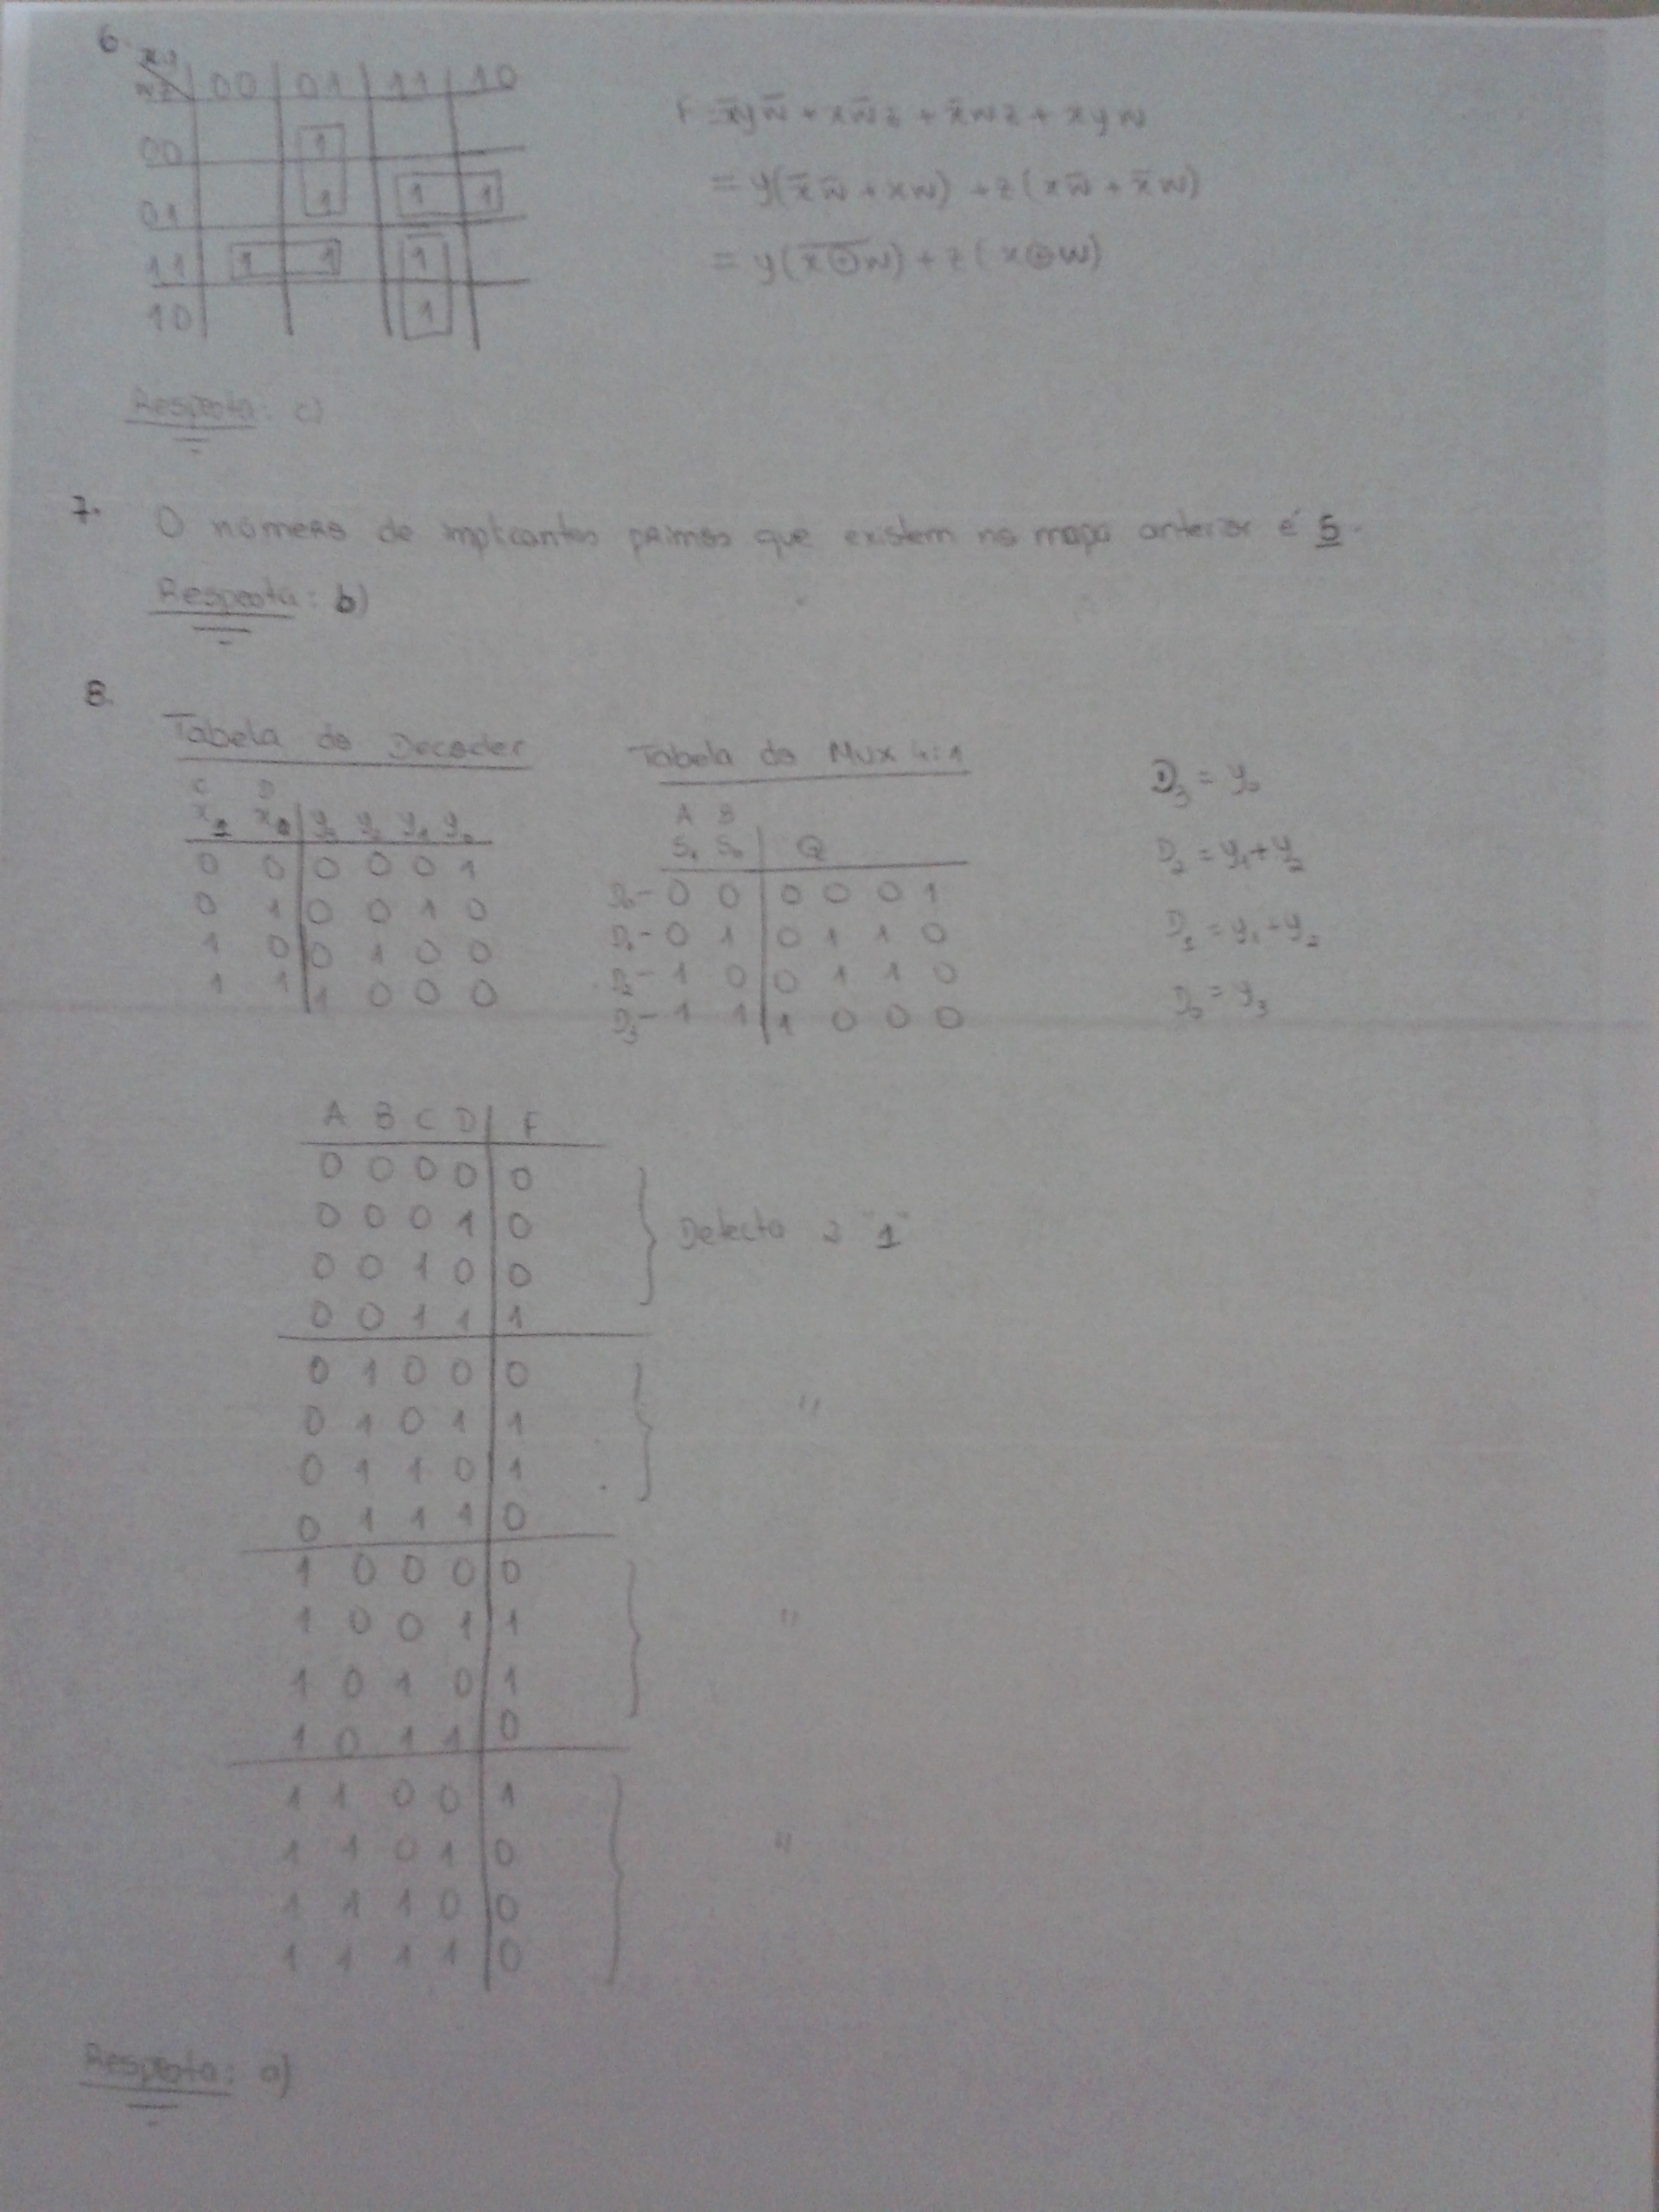 6.
xy
wz 00 01 11 10
00 1
01 1 1 1
11 1 1 1
10 1
F = x̄yw̄ + xw̄z + x̄wz + xyw
= y(x̄w̄ + xw) + z(xw̄ + x̄w)
= y(x⊕w)‾ + z(x⊕w)
Resposta: c)
7. O número de implicantes primos que existem no mapa anterior é 5.
Resposta: b)
8.
Tabela do Decoder
C D
x₁ x₀ y₃ y₂ y₁ y₀
0 0 0 0 0 1
0 1 0 0 1 0
1 0 0 1 0 0
1 1 1 0 0 0
Tabela do Mux 4:1
A B
S₁ S₀ Q
D₀ - 0 0 0 0 0 1
D₁ - 0 1 0 1 1 0
D₂ - 1 0 0 1 1 0
D₃ - 1 1 1 0 0 0
D₃ = y₀
D₂ = y₁ + y₂
D₁ = y₁ + y₂
D₀ = y₃
A B C D F
0 0 0 0 0
0 0 0 1 0
0 0 1 0 0
0 0 1 1 1
Detecta 2 "1"
0 1 0 0 0
0 1 0 1 1
0 1 1 0 1
0 1 1 1 0
"
1 0 0 0 0
1 0 0 1 1
1 0 1 0 1
1 0 1 1 0
"
1 1 0 0 1
1 1 0 1 0
1 1 1 0 0
1 1 1 1 0
"
Resposta: a)